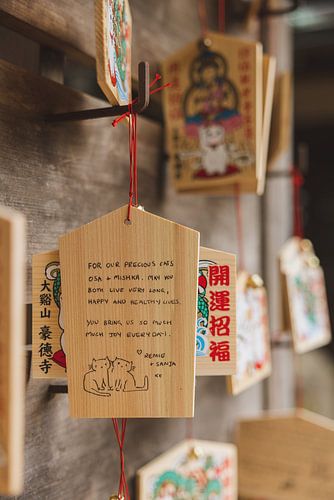 FOR OUR PRECIOUS CATS
OSA + MISHKA. MAY YOU
BOTH LIVE VERY LONG,
HAPPY AND HEALTHY LIVES.
YOU BRING US SO MUCH
MUCH JOY EVERYDAY.
♡ REMIO
+ SANJA
xx
大谿山
豪徳寺
開運招福